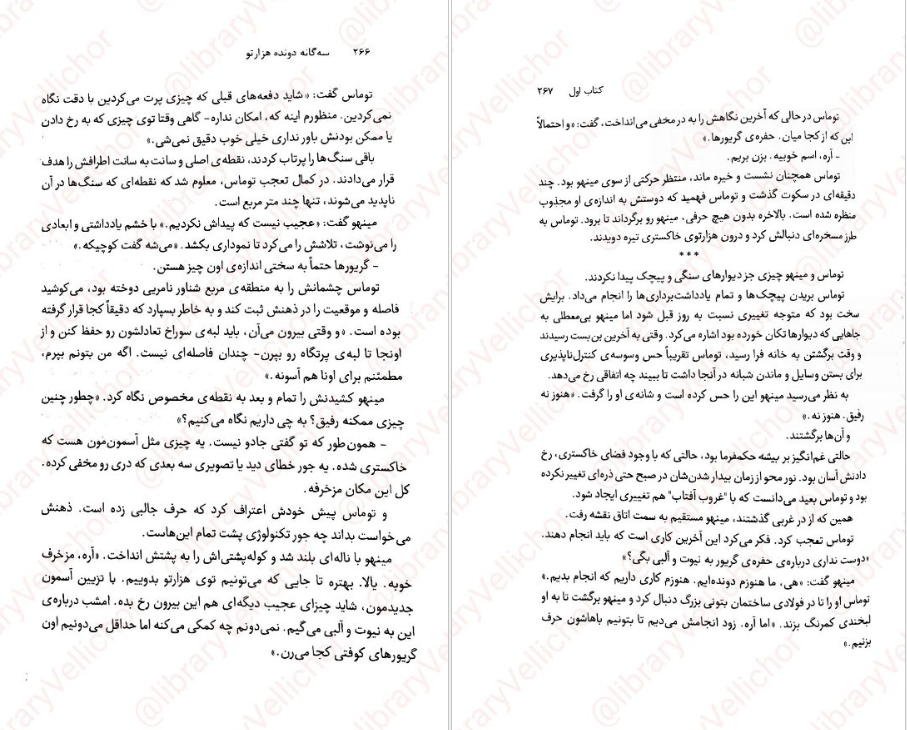 ۲۶۶ سه‌گانه دونده هزارتو
توماس گفت: «شاید دفعه‌های قبلی که چیزی پرت می‌کردین با دقت نگاه
نمی‌کردین. منظورم اینه که، امکان نداره- گاهی وقتا توی چیزی که به رخ دادن
یا ممکن بودنش باور نداری خیلی خوب دقیق نمی‌شی.»
باقی سنگ‌ها را پرتاب کردند، نقطه‌ی اصلی و سانت به سانت اطرافش را هدف
قرار می‌دادند. در کمال تعجب توماس، معلوم شد که نقطه‌ای که سنگ‌ها در آن
ناپدید می‌شوند، تنها چند متر مربع است.
مینهو گفت: «عجیب نیست که پیداش نکردیم.» با خشم یادداشتی و ابعادی
را می‌نوشت، تلاشش را می‌کرد تا نموداری بکشد. «می‌شه گفت کوچیکه.»
- گریورها حتماً به سختی اندازه‌ی اون چیز هستن.
توماس چشمانش را به منطقه‌ی مربع شناور نامریی دوخته بود، می‌کوشید
فاصله و موقعیت را در ذهنش ثبت کند و به خاطر بسپارد که دقیقاً کجا قرار گرفته
بوده است. «و وقتی بیرون می‌آن، باید لبه‌ی سوراخ تعادلشون رو حفظ کنن و از
اونجا تا لبه‌ی پرتگاه رو بپرن- چندان فاصله‌ای نیست. اگه من بتونم بپرم،
مطمئنم برای اونا هم آسونه.»
مینهو کشیدنش را تمام و بعد به نقطه‌ی مخصوص نگاه کرد. «چطور چنین
چیزی ممکنه رفیق؟ به چی داریم نگاه می‌کنیم؟»
- همون‌طور که تو گفتی جادو نیست. یه چیزی مثل آسمون‌مون هست که
خاکستری شده. یه جور خطای دید یا تصویری سه بعدی که دری رو مخفی کرده.
کل این مکان مزخرفه.
و توماس پیش خودش اعتراف کرد که حرف جالبی زده است. ذهنش
می‌خواست بداند چه جور تکنولوژی پشت تمام این‌هاست.
مینهو با ناله‌ای بلند شد و کوله‌پشتی‌اش را به پشتش انداخت. «آره، مزخرف
خوبه. یالا. بهتره تا جایی که می‌تونیم توی هزارتو بدوییم. با تزیین آسمون
جدیدمون، شاید چیزای عجیب دیگه‌ای هم این بیرون رخ بده. امشب درباره‌ی
این به نیوت و آلبی می‌گیم. نمی‌دونم چه کمکی می‌کنه اما حداقل می‌دونیم اون
گریورهای کوفتی کجا می‌رن.»
کتاب اول ۲۶۷
توماس در حالی که آخرین نگاهش را به در مخفی می‌انداخت، گفت: «و احتمالاً
این که از کجا میان. حفره‌ی گریورها.»
- آره، اسم خوبیه. بزن بریم.
توماس همچنان نشست و خیره ماند، منتظر حرکتی از سوی مینهو بود. چند
دقیقه‌ای در سکوت گذشت و توماس فهمید که دوستش به اندازه‌ی او مجذوب
منظره شده است. بالاخره بدون هیچ حرفی، مینهو رو برگرداند تا برود. توماس به
طرز مسخره‌ای دنبالش کرد و درون هزارتوی خاکستری تیره دویدند.
***
توماس و مینهو چیزی جز دیوارهای سنگی و پیچک پیدا نکردند.
توماس بریدن پیچک‌ها و تمام یادداشت‌برداری‌ها را انجام می‌داد. برایش
سخت بود که متوجه تغییری نسبت به روز قبل شود اما مینهو بی‌معطلی به
جاهایی که دیوارها تکان خورده بود اشاره می‌کرد. وقتی به آخرین بن‌بست رسیدند
و وقت برگشتن به خانه فرا رسید، توماس تقریباً حس وسوسه‌ی کنترل‌ناپذیری
برای بستن وسایل و ماندن شبانه در آنجا داشت تا ببیند چه اتفاقی رخ می‌دهد.
به نظر می‌رسید مینهو این را حس کرده است و شانه‌ی او را گرفت. «هنوز نه
رفیق. هنوز نه.»
و آن‌ها برگشتند.
حالتی غم‌انگیز بر بیشه حکمفرما بود، حالتی که با وجود فضای خاکستری، رخ
دادنش آسان بود. نور محو از زمان بیدار شدن‌شان در صبح حتی ذره‌ای تغییر نکرده
بود و توماس بعید می‌دانست که با "غروب آفتاب" هم تغییری ایجاد شود.
همین که از در غربی گذشتند، مینهو مستقیم به سمت اتاق نقشه رفت.
توماس تعجب کرد. فکر می‌کرد این آخرین کاری است که باید انجام دهند.
«دوست نداری درباره‌ی حفره‌ی گریور به نیوت و آلبی بگی؟»
مینهو گفت: «هی، ما هنوزم دونده‌ایم. هنوزم کاری داریم که انجام بدیم.»
توماس او را تا در فولادی ساختمان بتونی بزرگ دنبال کرد و مینهو برگشت تا به او
لبخندی کمرنگ بزند. «اما آره. زود انجامش می‌دیم تا بتونیم باهاشون حرف
بزنیم.»
@libraryVellichor